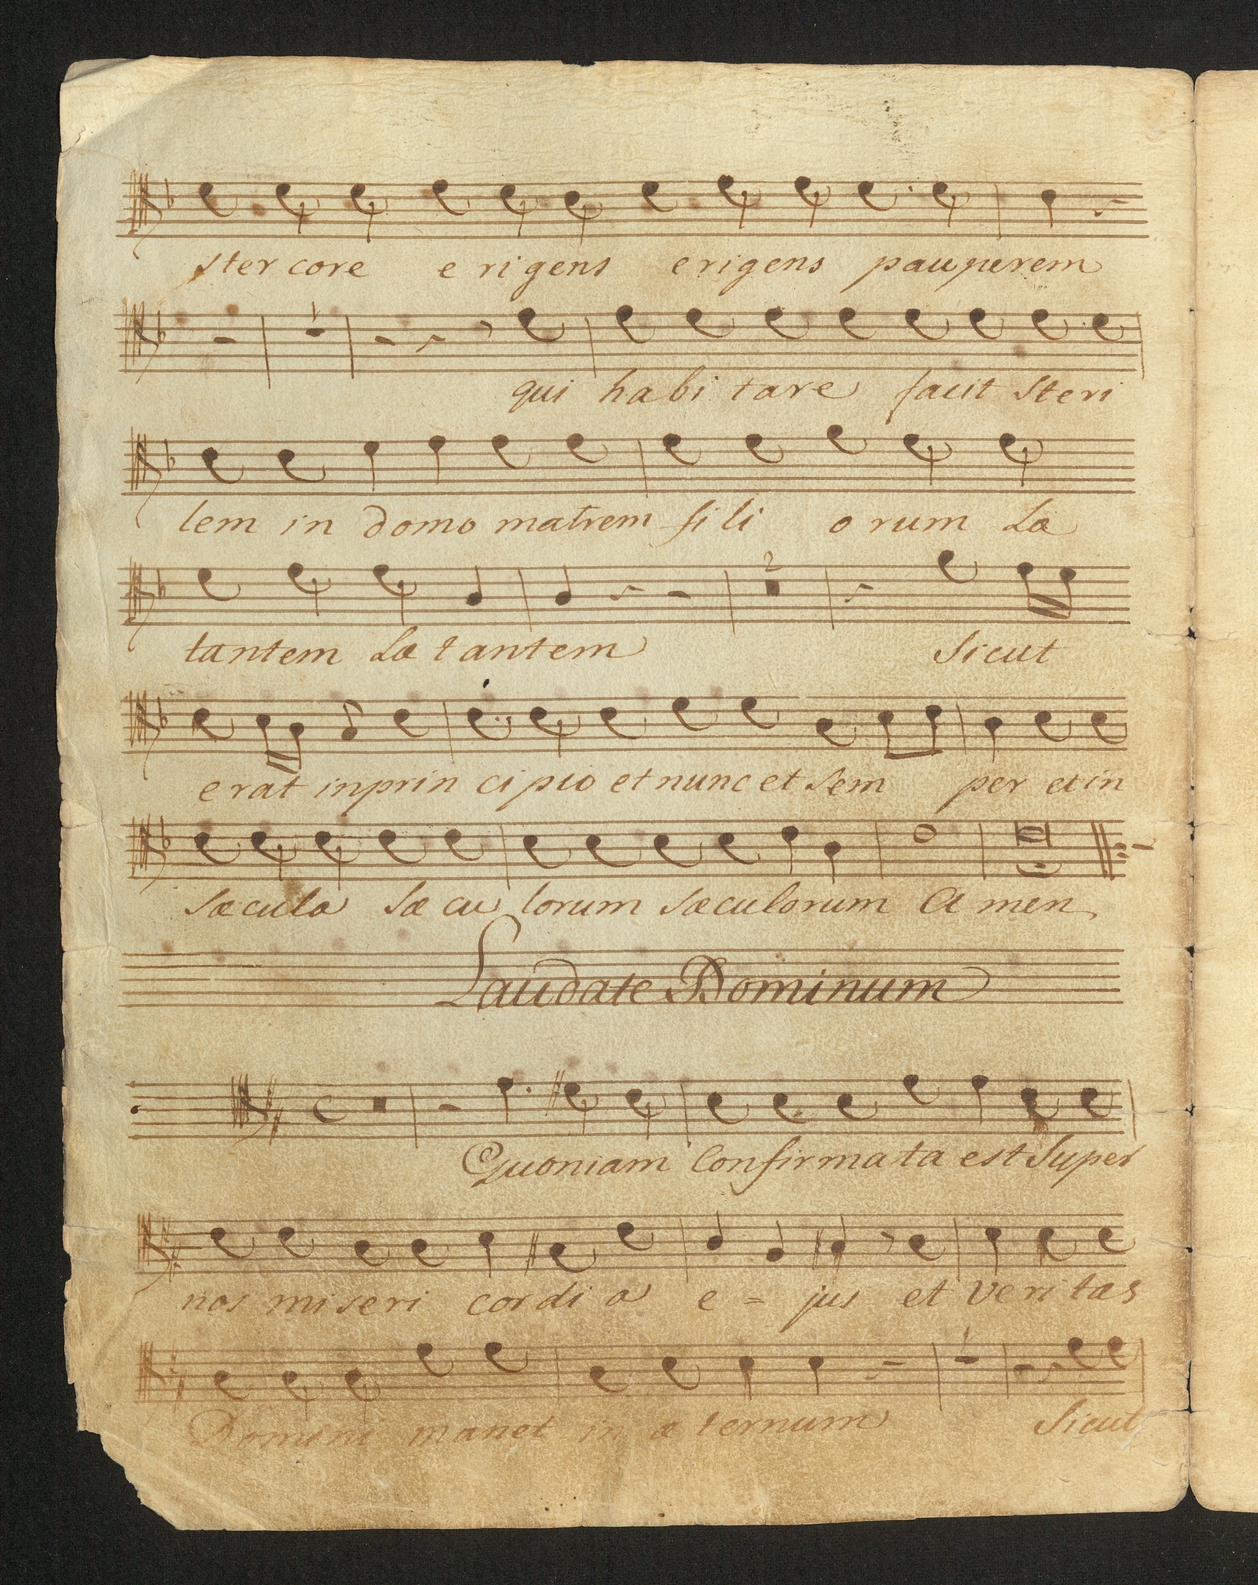 ster core e rigens erigens pauperem
qui habi tare facit Steri
lem in domo matrem fi li o rum Læ
2
tantem Læ tantem Sicut
erat in prin ci pio et nunc et sem per et in
sæcula sæ cu lorum sæculorum A men,
Laudate Dominum
Quoniam Confirmata est super
nos miseri cordi a e = jus et veri tas
Domini manet in æ ternum Sicut